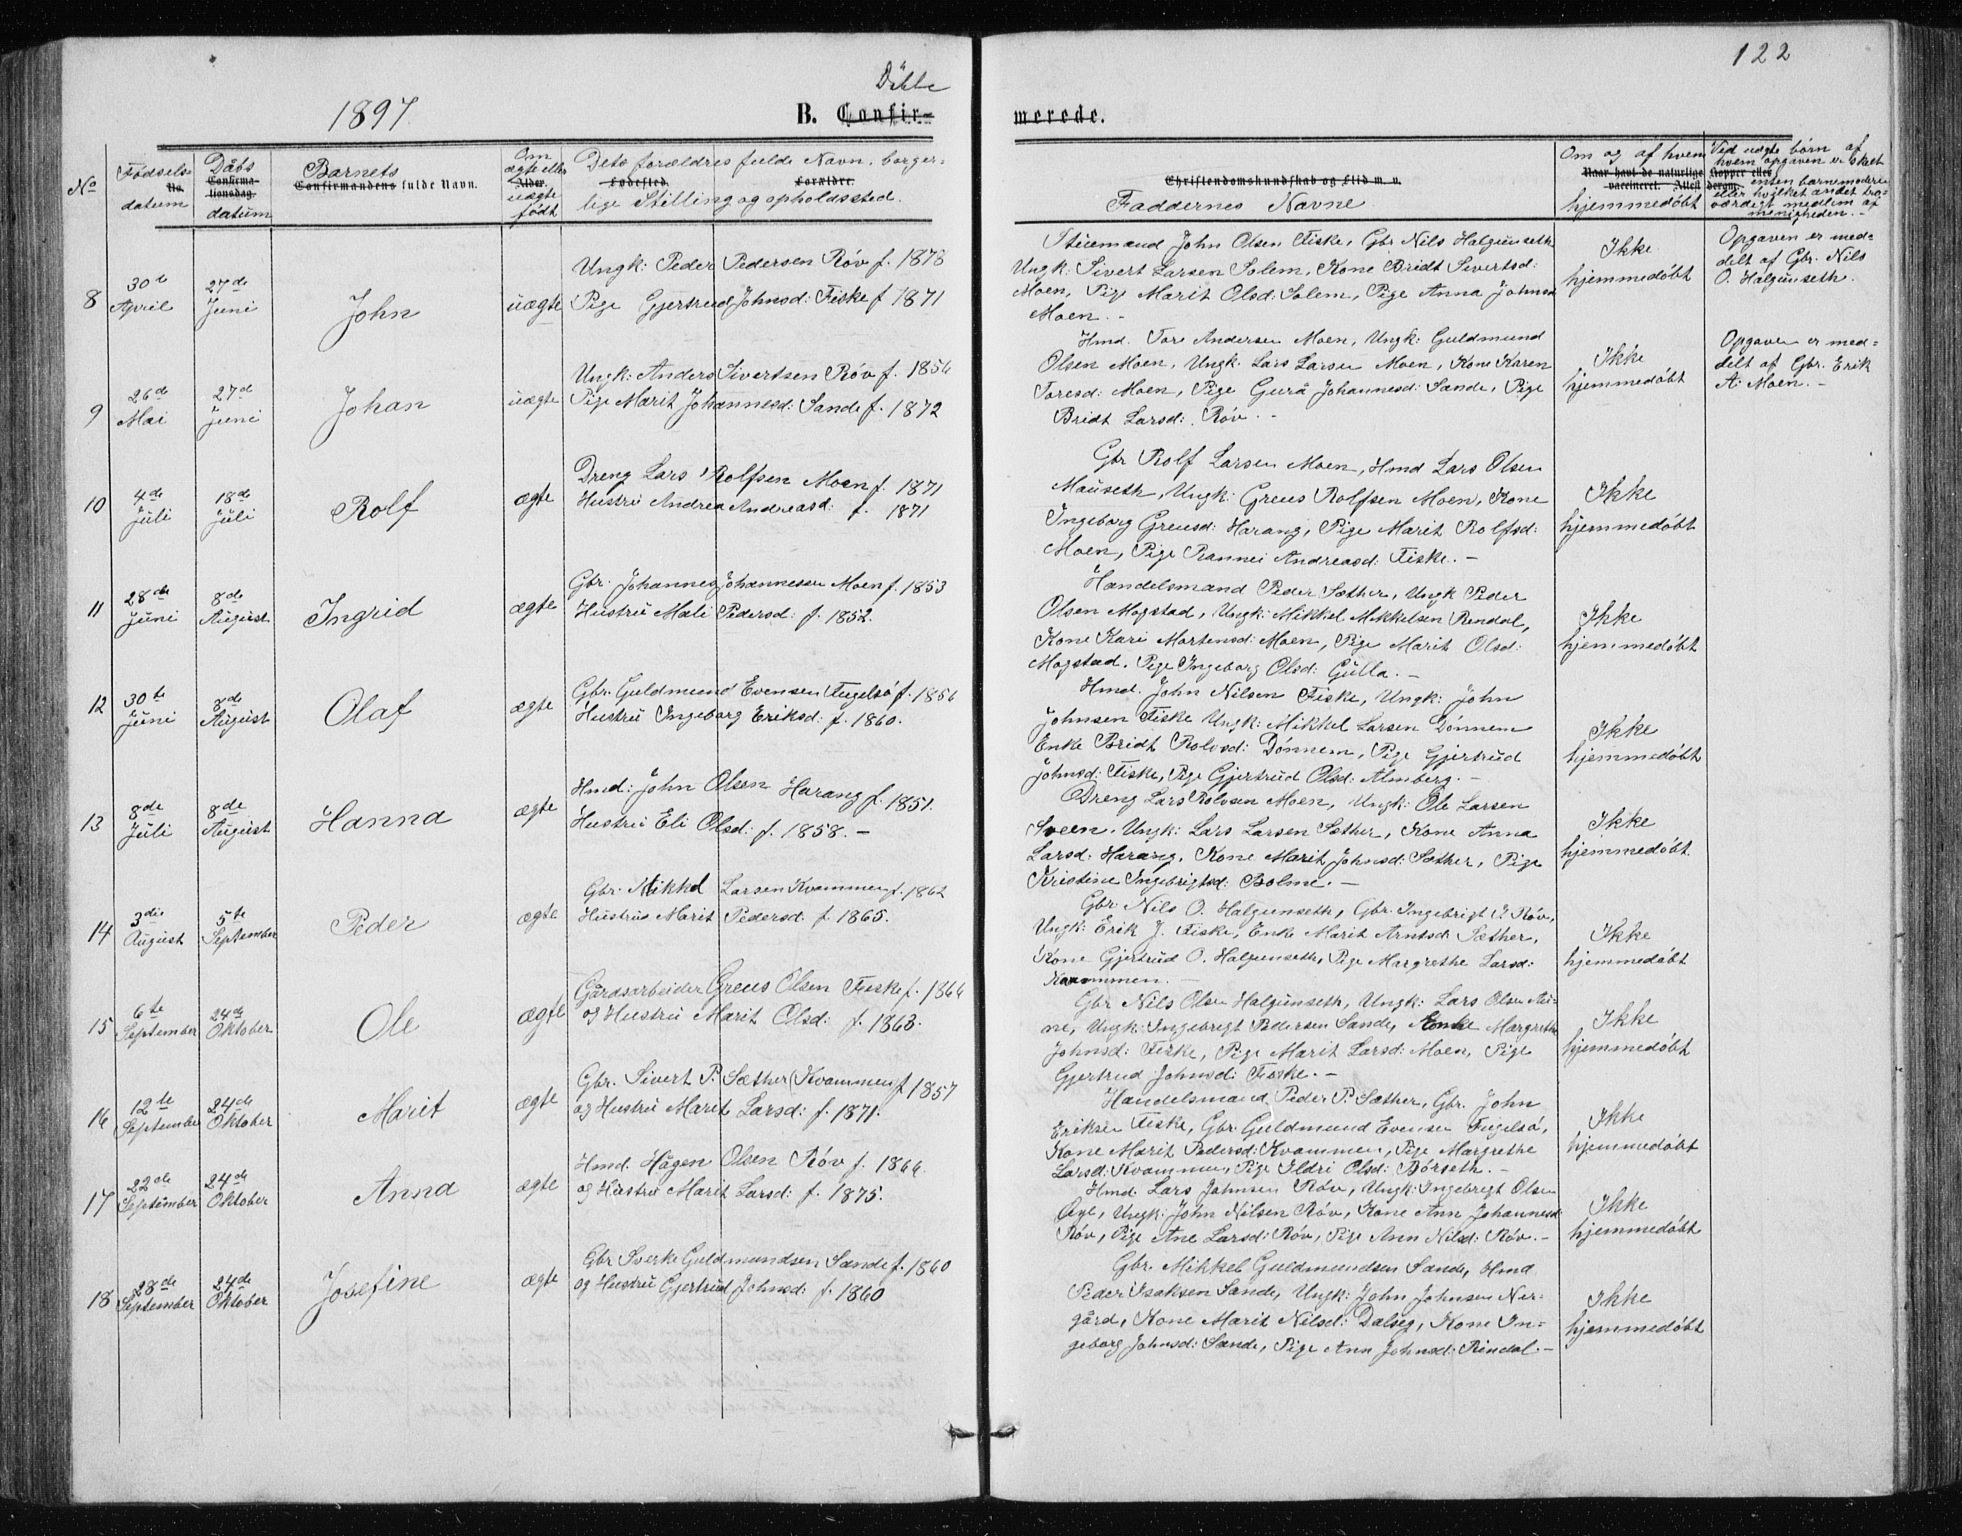 122
1897
Döbte
B. Confir-
merede.
No
Fødsels
No.
datum
Dåbs
Confirma-
tionsdag.
datum
Barnets
Confirmandens fulde Navn.
Om
ægte eller
Alder.
uægte
født
Dets forældres fulde Navn, borger-
Fødested. Forældre.
lige Stilling og opholdssted.
Christendomskundskab og Flid m. v.
Faddernes Navne
Om og af hvem
Naar havt de naturlige Kopper eller
vaccineret. Attest derom.
hjemmedøbt
Ved uægte børn af
hvem opgaven er skeet
enten barnemoderen
eller hvilket andet tro-
værdigt medlem af
menigheden. -
8
30te
April
27de
Juni
John
uægte
Ungk: Peder Pedersen Røv f. 1878
Pige Gjertrud Johnsd: Fiske f 1871
Stuemand John Olsen Fiske, Gbr Nils Halgunseth
Ungk: Sivert Larsen Solem, Kone Bridt Sivertsd:
Moen, Pige Marit Olsd: Solem, Pige Anna Johnsd
Moen. -
Ikke
hjemmedøbt
Opgaven er med-
delt af Gbr. Nils
O. Halgunseth.
9
26de
Mai
27de
Juni
Johan
uægte
Ungk: Anders Sivertsen Røv f. 1854
Pige Marit Johannesd: Sande f. 1872
Hmd. Tore Andersen Moen, Ungk: Guldmund
Olsen Moen, Ungk. Lars Larsen Moen, Kone Karen
Toresd: Moen, Pige Gurå Johannesd: Sande, Pige
Bridt Larsd: Røv. -
Ikke
hjemmedøbt
Opgaven er med-
delt af Gbr. Erik
A. Moen. -
10
4de
Juli
18de
Juli
Rolf
ægte
Dreng Lars Rolfsen Moen f. 1871
Hustru Andrea Andreasd: f. 1871
Gbr Rolf Larsen Moen, Hmd Lars Olsen
Mauseth, Ungk: Greus Rolfsen Moen, Kone
Ingeborg Greusd: Harang, Pige Marit Rolfsd:
Moen, Pige Rannei Andreasd: Fiske. -
Ikke
hjemmedøbt
11
28de
Juni
8de
August
Ingrid
ægte
Gbr. Johannes Johannessen Moen f. 1853
Hustru Mali Pedersd: f. 1852.
Handelsmand Peder Sæther, Ungk Peder
Olsen Mogstad, Ungk: Mikkel Mikkelsen Rendal,
Kone Kari Mortensd: Moen, Pige Marit Olsd:
Mogstad. Pige Ingeborg Olsd: Gulla. -
Ikke
hjemmedøbt
12
30te
Juni
8de
August
Olaf
ægte
Gbr. Guldmund Evensen Fugelsø f. 1856
Hustru Ingeborg Eriksd: f. 1860.
Hmd. John Nilsen Fiske, Ungk: John
Johnsen Fiske Ungk: Mikkel Larsen Dønnem
Enke Bridt Rolvsd: Dønnem, Pige Gjertrud
Johnsd: Fiske, Pige Gjertrud Olsd: Almberg. -
Ikke
hjemmedøbt
13
8de
Juli
8de
August
Hanna
ægte
Hmd: John Olsen Harang f. 1851.
Hustru Eli Olsd: f. 1858. -
Dreng Lars Rolvsen Moen, Ungk: Ole Larsen
Sveen. Ungk: Lars Larsen Sæther, Kone Anna
Larsd: Harang, Kone Marit Johnsd: Sæther, Pige
Kristine Ingebrigtsd: Bolme. -
Ikke
hjemmedøbt.
14
3die
August
5te
September
Peder
ægte
Gbr. Mikkel Larsen Kvammen f. 1862
Hustru Marit Pedersd: f. 1865.
Gbr. Nils O. Halgunseth, Gbr. Ingebrigt P. Røv,
Ungk: Erik J. Fiske, Enke Marit Arntsd: Sæther,
Kone Gjertrud O. Halgunseth, Pige Margrethe Larsd:
Kvammen. -
Ikke
hjemmedøbt
15
6te
September
24de
Oktober
Ole
ægte
Gårdsarbeider Greus Olsen Fiske f. 1866
og Hustru Marit Olsd: f. 1863.
Gbr Nils Olsen Halgunseth, Ungk: Lars Olsen
ne, Ungk: Ingebrigt Pedersen Sande, Enke Margrethe
Johnsd: Fiske, Pige Marit Larsd: Moen, Pige
Gjertrud Johnsd: Fiske. -
Ikke
hjemmedøbt
16
12te
September
24de
Oktober
Marit
ægte
Gbr. Sivert P. Sæther (Kvammen) f 1857
og Hustru Marit Larsd: f. 1871.
Handelsmand Peder P. Sæther, Gbr. John
Eriksen Fiske, Gbr. Guldmund Evensen Fugelsø,
Kone Marit Pedersd: Kvammen, Pige Margrethe
Larsd: Kvammen, Pige Ildri Olsd: Børseth. -
Ikke
hjemmedøbt
17
22de
September
24de
Oktober
Anna
ægte
Hmd. Hågen Olsen Røv f. 1866.
og Hustru Marit Larsd: f. 1875.
Hmd. Lars Johnsen Røv, Ungk: Ingebrigt Olsen
Øye, Ungk: John Nilsen Røv, Kone Ann Johannesd:
Røv, Pige Ane Larsd: Røv, Pige Ann Nilsd: Røv. -
Ikke
hjemmedøbt
18
28de
September
24de
Oktober
Josefine
ægte
Gbr Sverke Guldmundsen Sande f. 1860
og Hustru Gjertrud Johnsd: f. 1860
Gbr. Mikkel Guldmundsen Sande, Hmd
Peder Isaksen Sande, Ungk: John Johnsen Ner-
gård, Kone Marit Nilsd: Dalseg, Kone In-
geborg Johnsd: Sande, Pige Ann Johnsd: Rindal. -
Ikke
hjemmedøbt